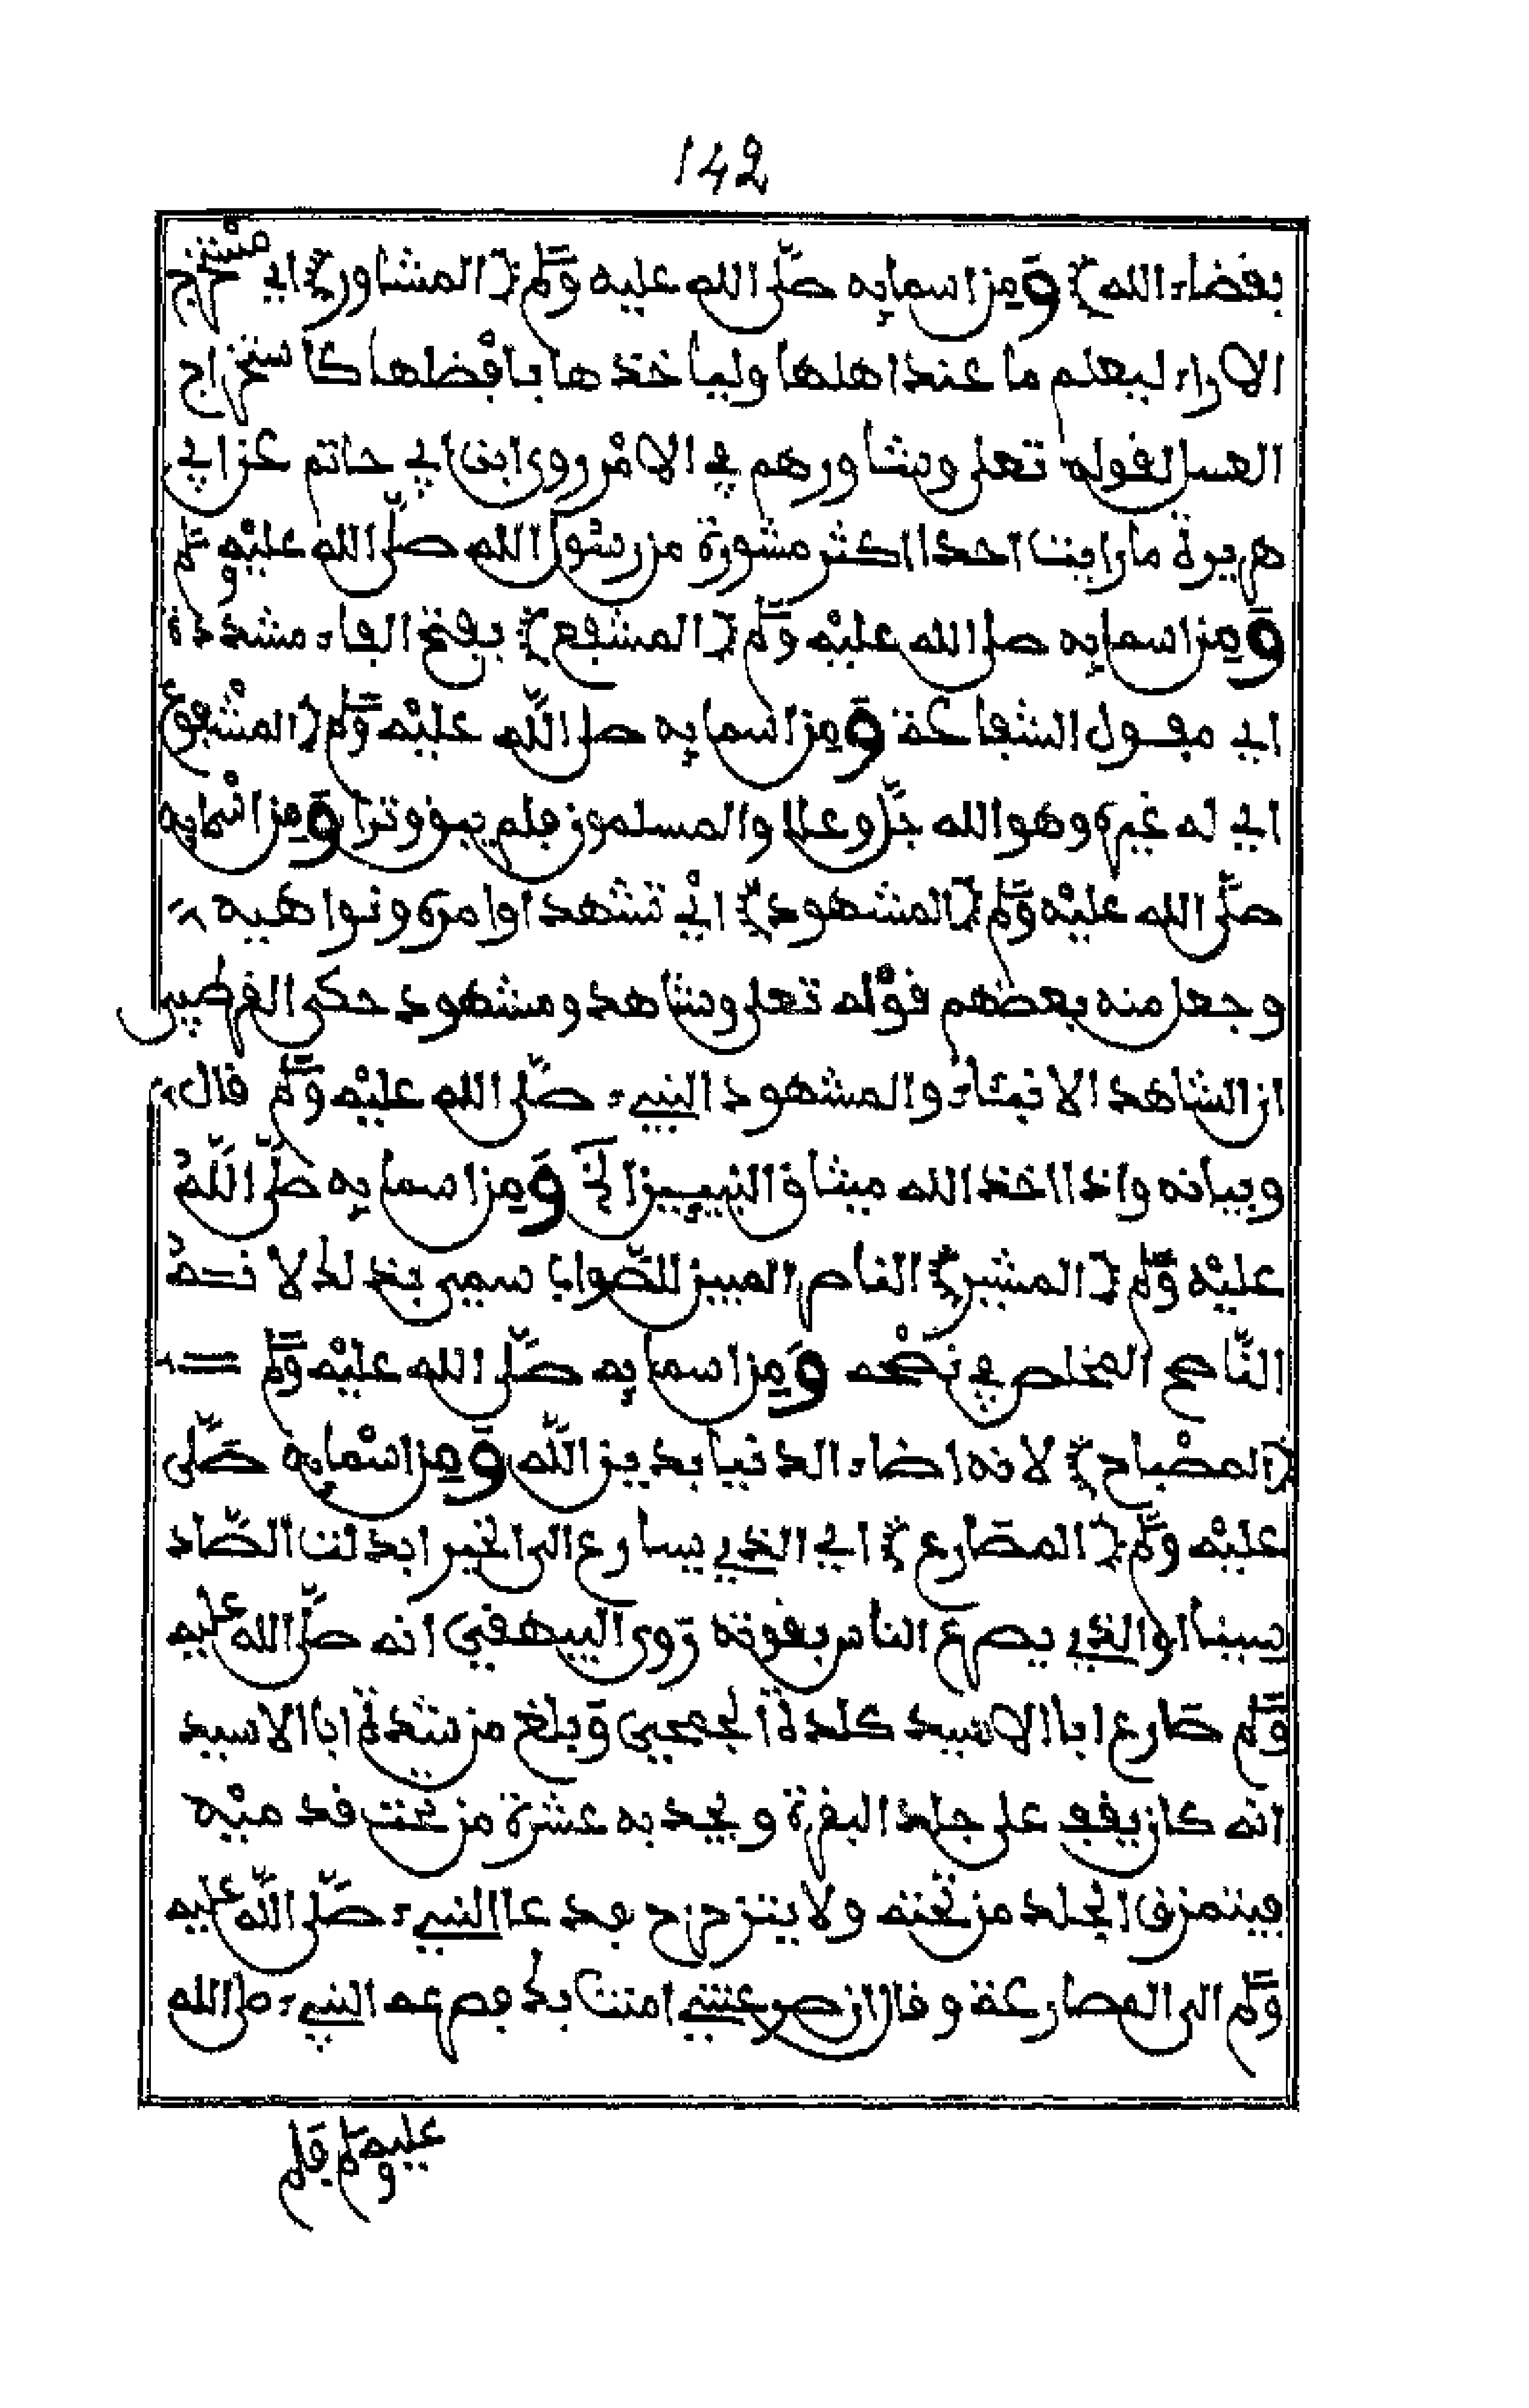 142
بقضاء الله) ومن اسمايه صلى الله عليه وسلم (المشاور) اي مستخرج
الاراء ليعلم ما عند اهلها ولياخذها بافضلها كاستخراج
العسل لقوله تعلى وشاورهم في الامر روى ابن ابي حاتم عن ابي
هريرة ما رايت احدا اكثر مشورة من رسول الله صلى الله عليه وسلم
ومن اسمايه صلى الله عليه وسلم (المشفع) بفتح الفاء مشددة
اي مقبول الشفاعة ومن اسمايه صلى الله عليه وسلم (المشفوع
اي له غيره وهو الله جل وعلا والمسلمون فلم يبق وترا ومن اسمايه
صلى الله عليه وسلم (المشهود) اي تشهد اوامره ونواهيه
وجعل منه بعضهم قوله تعلى وشاهد ومشهود حكى القرطبي
ان الشاهد الانبياء والمشهود النبيء صلى الله عليه وسلم قال
وبيانه واذا اخذ الله ميثاق النبيين الخ ومن اسمايه صلى الله
عليه وسلم (المشير) الناصح المبين للصواب سمي بذلك لانه
الناصح المخلص في نصحه ومن اسمايه صلى الله عليه وسلم
(المصباح) لانه اضاء الدنيا بدين الله ومن اسمايه صلى
عليه وسلم (المصارع) اي الذي يسارع الى الخير ابدلت الصاد
سينا او الذي يصرع الناس بقوته روى البيهقي انه صلى الله عليه
وسلم صارع ابا الاسيد كلدة الجمحي وبلغ من شدة ابا الاسيد
انه كان يقف على جلد البقرة ويجذبه عشرة من تحت قدميه
فيتمزق الجلد من تحته ولا يتزحزح فدعا النبيء صلى الله عليه
وسلم الى المصارعة وقال ان صرعتني امنت بك فصرعه النبيء صلى الله
عليه وسلم فلم